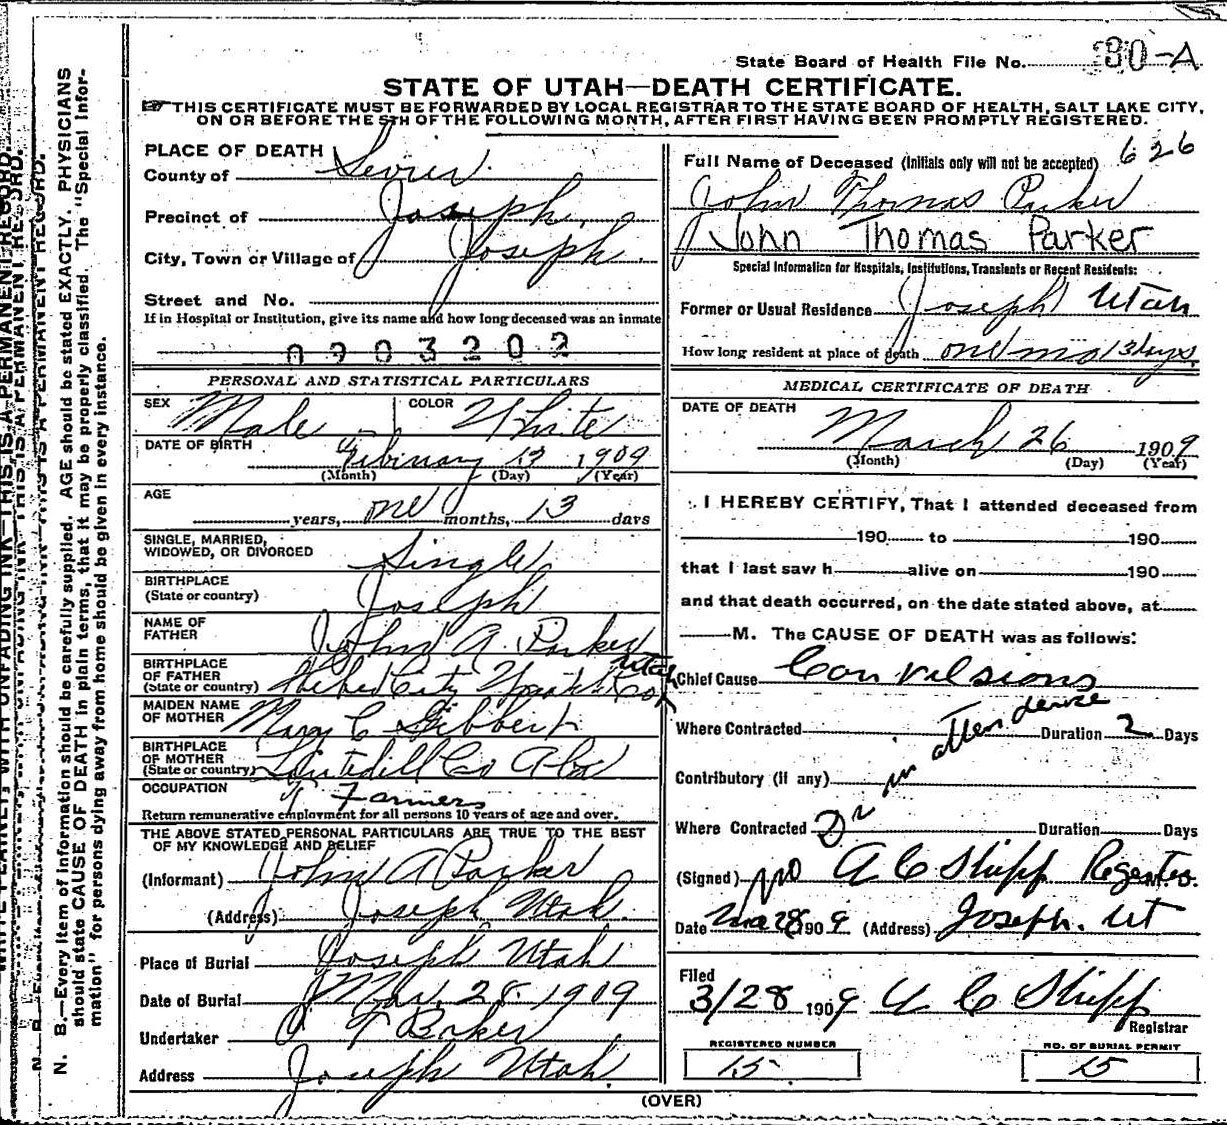 State Board of Health File No. 30-A
STATE OF UTAH—DEATH CERTIFICATE.
THIS CERTIFICATE MUST BE FORWARDED BY LOCAL REGISTRAR TO THE STATE BOARD OF HEALTH, SALT LAKE CITY,
ON OR BEFORE THE 5TH OF THE FOLLOWING MONTH, AFTER FIRST HAVING BEEN PROMPTLY REGISTERED.
PLACE OF DEATH
County of Sevier.
Precinct of Joseph,
City, Town or Village of Joseph.
Street and No.
If in Hospital or Institution, give its name and how long deceased was an inmate
0903202
PERSONAL AND STATISTICAL PARTICULARS
SEX Male COLOR White
DATE OF BIRTH February 13 1909
(Month) (Day) (Year)
AGE
years, one months, 13 days
SINGLE, MARRIED,
WIDOWED, OR DIVORCED Single
BIRTHPLACE
(State or country) Joseph
NAME OF
FATHER John A. Parker
BIRTHPLACE
OF FATHER
(State or country) Heber City Utah
MAIDEN NAME
OF MOTHER Mary C
BIRTHPLACE
OF MOTHER
(State or country) Co Ala
OCCUPATION Farmers
Return remunerative employment for all persons 10 years of age and over.
THE ABOVE STATED PERSONAL PARTICULARS ARE TRUE TO THE BEST
OF MY KNOWLEDGE AND BELIEF
(Informant) John A Parker
(Address) Joseph Utah.
Place of Burial Joseph Utah
Date of Burial Mar. 28. 1909
Undertaker
Address Joseph Utah.
626
Full Name of Deceased (Initials only will not be accepted)
John Thomas Parker
John Thomas Parker
Special Information for Hospitals, Institutions, Transients or Recent Residents:
Former or Usual Residence Joseph Utah
How long resident at place of death one mo 13 days.
MEDICAL CERTIFICATE OF DEATH
DATE OF DEATH
March 26 1909
(Month) (Day) (Year)
I HEREBY CERTIFY, That I attended deceased from
190 to 190
that I last saw h alive on 190
and that death occurred, on the date stated above, at
M. The CAUSE OF DEATH was as follows:
Chief Cause Convulsions
Where Contracted Duration 2 Days
Contributory (if any)
Where Contracted Duration Days
no Dr in attendence
(Signed) A C Shipp
Date Mar 28 1909 (Address) Joseph. Ut
Filed
3/28 1909 A C Shipp
Registrar
REGISTERED NUMBER
15
NO. OF BURIAL PERMIT
15
(OVER)
N. B.—Every item of information should be carefully supplied. AGE should be stated EXACTLY. PHYSICIANS
should state CAUSE OF DEATH in plain terms, that it may be properly classified. The "Special Infor-
mation" for persons dying away from home should be given in every instance.